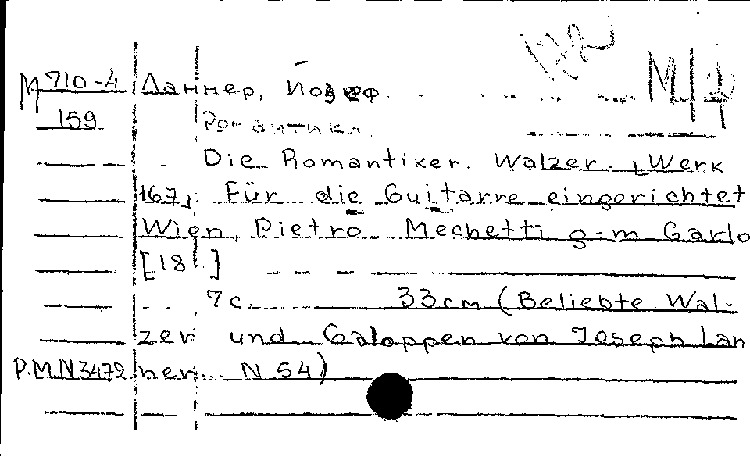 М 710-4 Даннер, Йозеф. М/ф
159 Романтики.
Die Romantiker. Walzer. Werk
167, Für die Guitarre eingerichtet
Wien, Pietro Mechetti g-m Carlo
[18 .]
7 c. 33 cm (Beliebte Wal-
zer und Galoppen von Joseph Lan
P.M.N3479 ner. N 54)